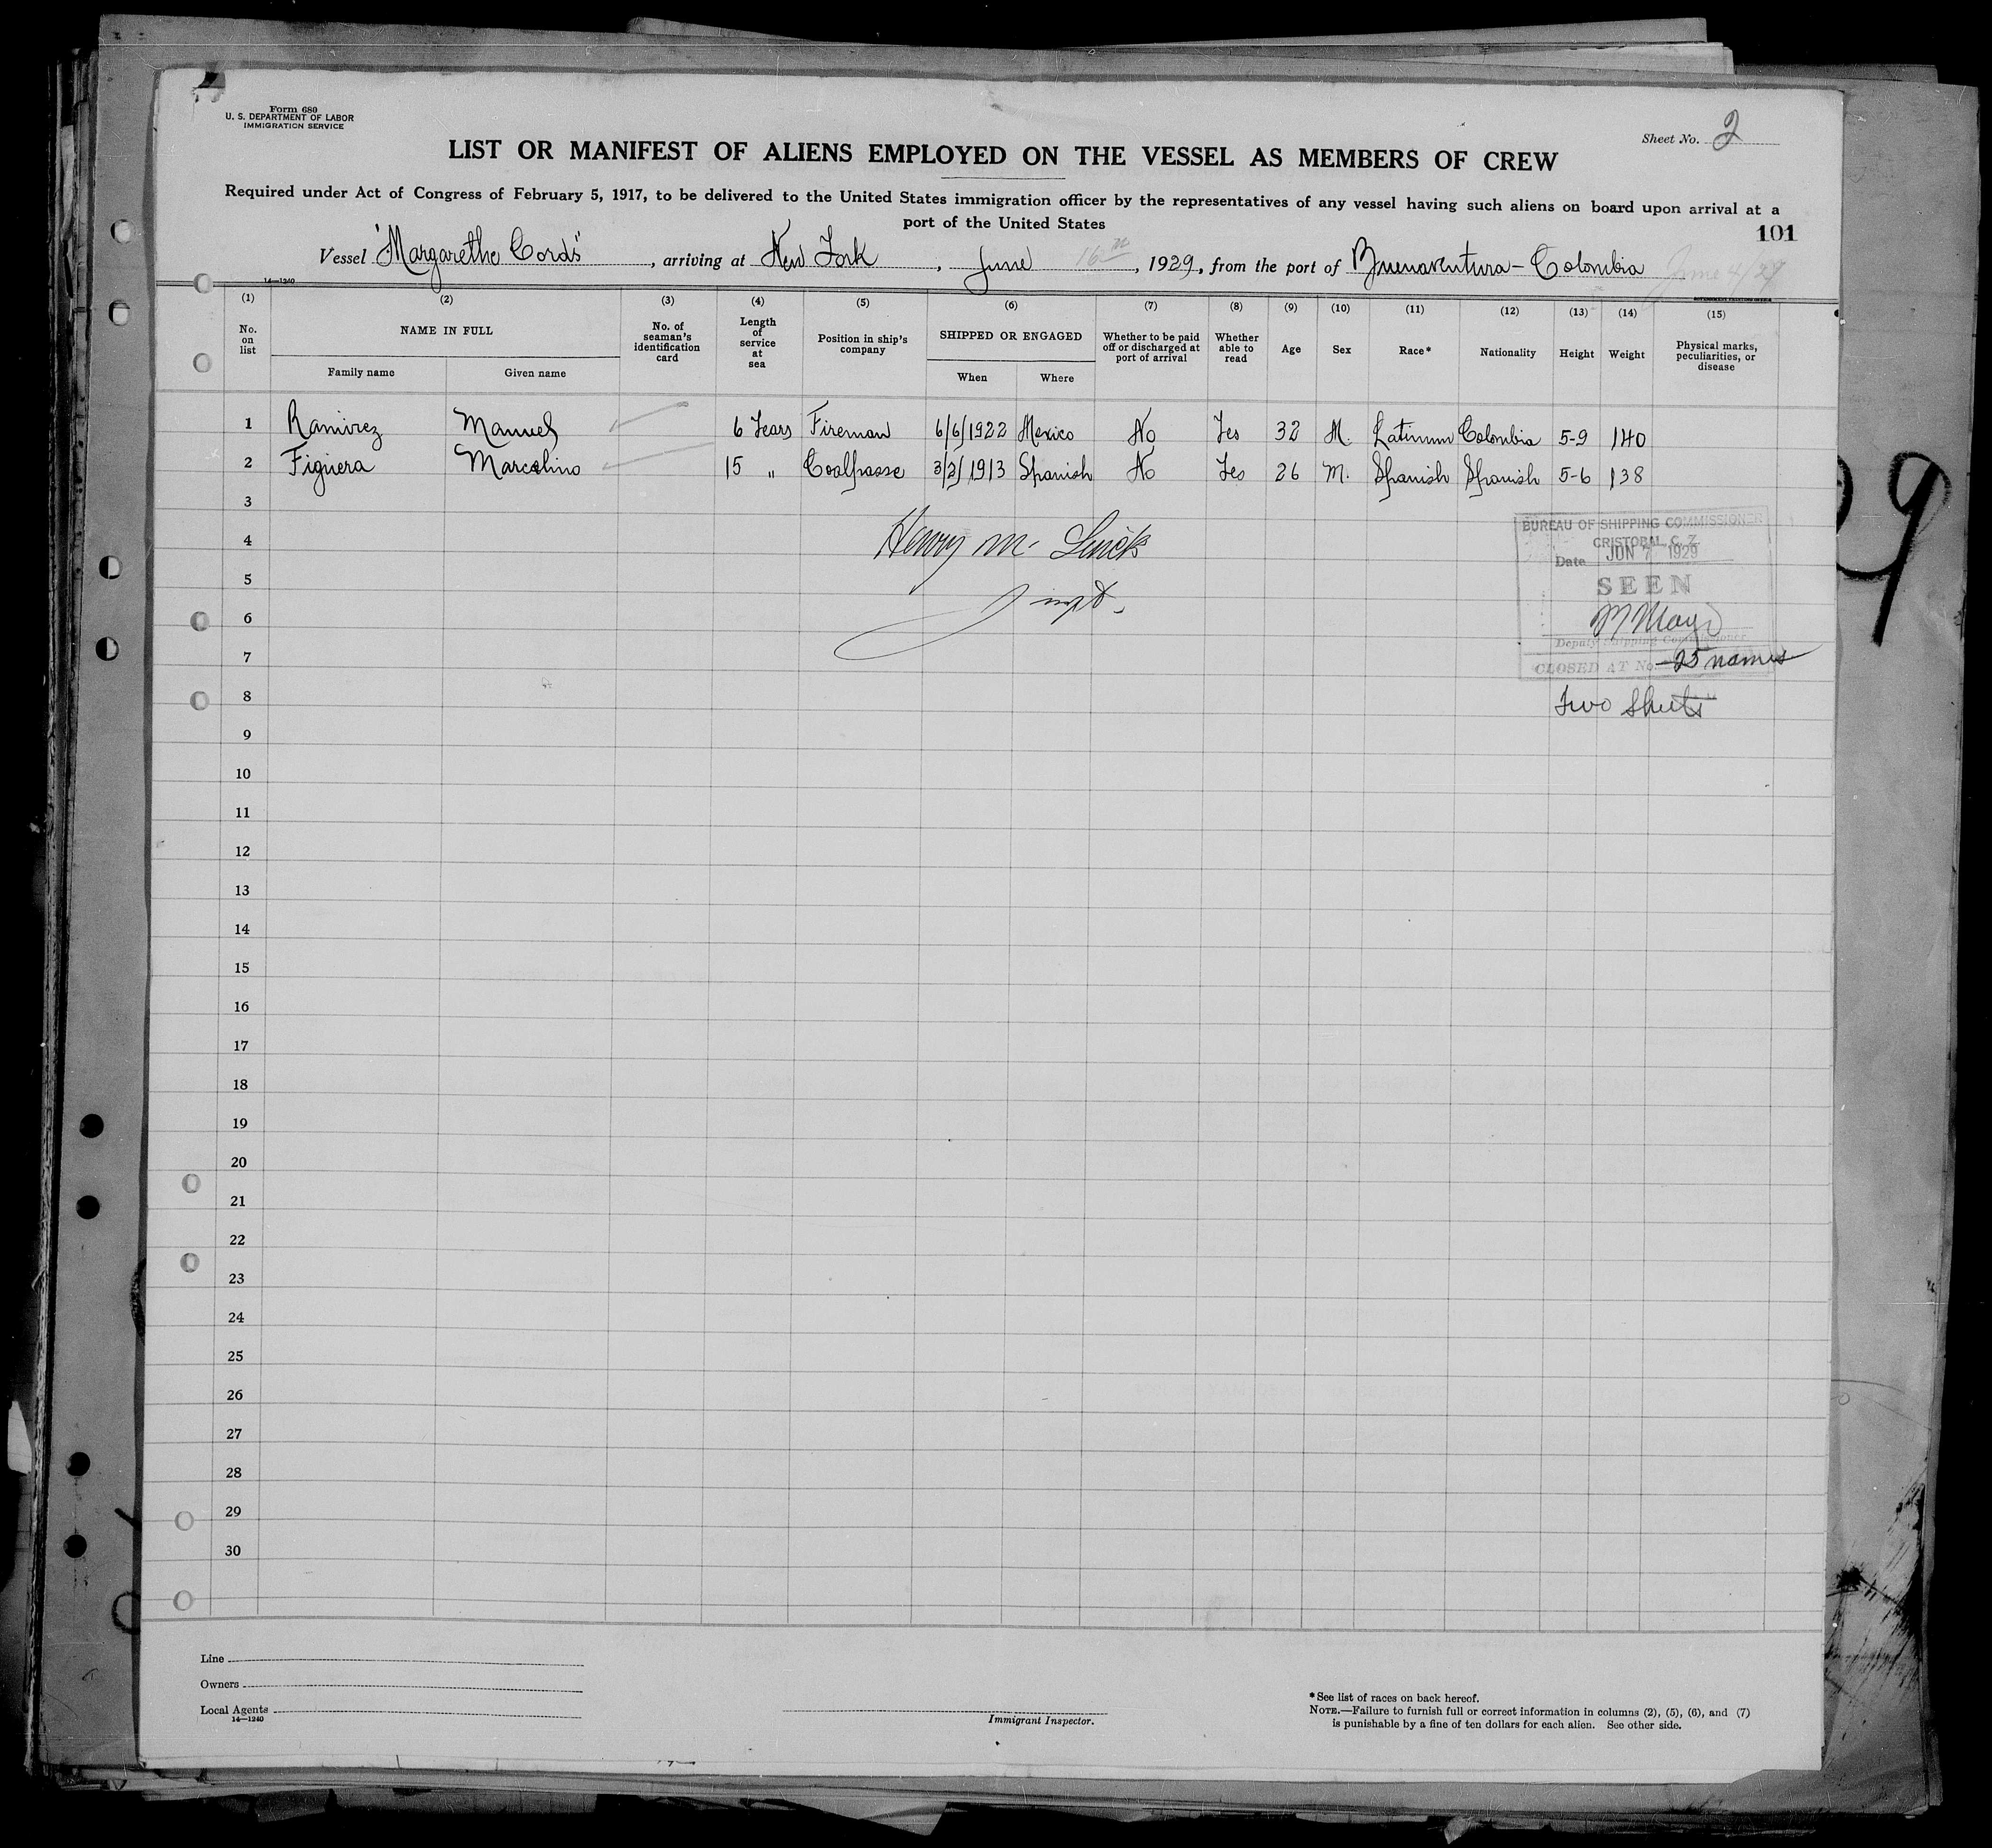 Form 680
U. S. DEPARTMENT OF LABOR
IMMIGRATION SERVICE
Sheet No. 2
LIST OR MANIFEST OF ALIENS EMPLOYED ON THE VESSEL AS MEMBERS OF CREW
Required under Act of Congress of February 5, 1917, to be delivered to the United States immigration officer by the representatives of any vessel having such aliens on board upon arrival at a
port of the United States
101
Vessel "Margarethe Cords", arriving at New York, June 16th, 1929, from the port of Buenaventura - Colombia June 4/29
14—1240
GOVERNMENT PRINTING OFFICE
(1) (2) (3) (4) (5) (6) (7) (8) (9) (10) (11) (12) (13) (14) (15)
No. on list NAME IN FULL No. of seaman's identification card Length of service at sea Position in ship's company SHIPPED OR ENGAGED Whether to be paid off or discharged at port of arrival Whether able to read Age Sex Race* Nationality Height Weight Physical marks, peculiarities, or disease
Family name Given name When Where
1 Ramirez Manuel 6 Years Fireman 6/6/1922 Mexico No Yes 32 M. Colombia 5-9 140
2 Figuera Marcelino 15 " Coalpasse 3/2/1913 Spanish No Yes 26 M. Spanish Spanish 5-6 138
3
4
5
6
7
8
9
10
11
12
13
14
15
16
17
18
19
20
21
22
23
24
25
26
27
28
29
30
Henry M.
BUREAU OF SHIPPING COMMISSIONER
CRISTOBAL, C. Z.
Date JUN 7 1929
SEEN
Deputy Shipping Commissioner
CLOSED AT No. 25 names
Two Sheets
Line
Owners
Local Agents
14—1240
Immigrant Inspector.
*See list of races on back hereof.
NOTE.—Failure to furnish full or correct information in columns (2), (5), (6), and (7)
is punishable by a fine of ten dollars for each alien. See other side.